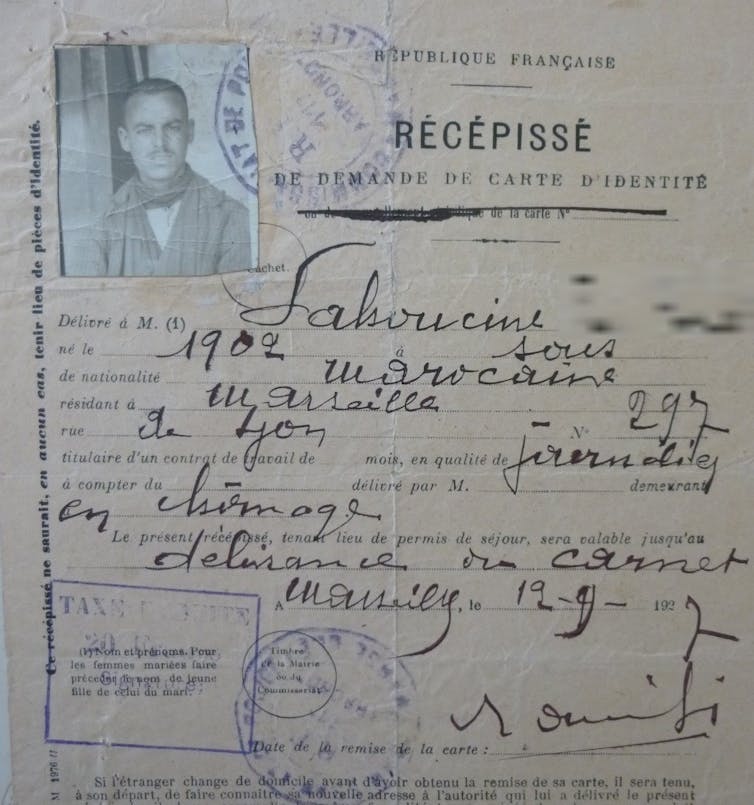 RÉPUBLIQUE FRANÇAISE
RÉCÉPISSÉ
DE DEMANDE DE CARTE D'IDENTITÉ
de la carte N°
Cachet.
Délivré à M. (1) Lahoucine
né le 1902 à sous
de nationalité marocaine
résidant à Marseille
rue de Lyon N° 297
titulaire d'un contrat de travail de mois, en qualité de journalier
à compter du délivré par M. demeurant
en chômage
Le présent récépissé, tenant lieu de permis de séjour, sera valable jusqu'au
délivrance du carnet
A Marseille, le 12-9- 1927
TAXE
(1) Nom et prénoms. Pour
les femmes mariées faire
précéder le nom de jeune
fille de celui du mari.
Timbre
de la Mairie
ou du
Commissariat
Date de la remise de la carte :
Si l'étranger change de domicile avant d'avoir obtenu la remise de sa carte, il sera tenu,
à son départ, de faire connaître sa nouvelle adresse à l'autorité qui lui a délivré le présent
Ce récépissé ne saurait, en aucun cas, tenir lieu de pièces d'identité.
M 1976